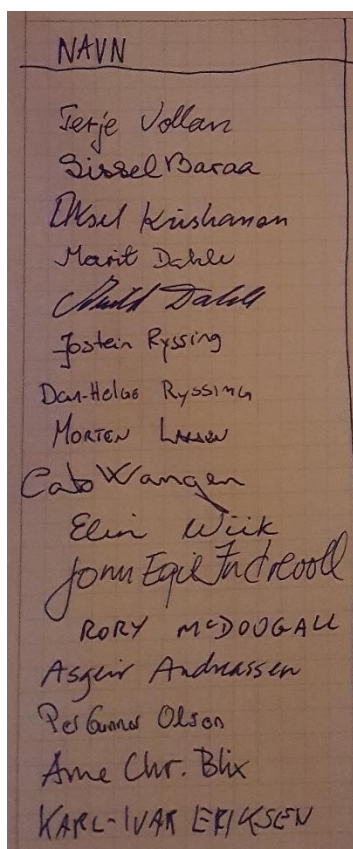 NAVN
Terje Vollan
Sissel Baraa
Aksel Kristiansen
Marit Dahle
Dahle
Jostein Ryssing
Dan-Helge Ryssing
MORTEN LARSEN
Cato Wangen
Elin Wiik
John Egil Indrevoll
RORY McDOUGALL
Asgeir Andreassen
Per Gunnar Olson
Arne Chr. Blix
KARL-IVAR ERIKSEN